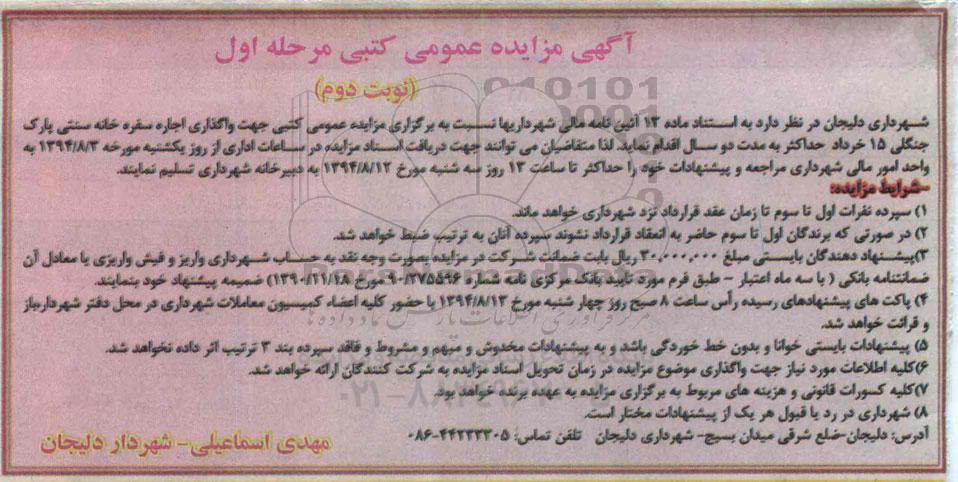 آگهی مزایده عمومی کتبی مرحله اول
(نوبت دوم)
شهرداری دلیجان در نظر دارد به استناد ماده ۱۳ آئین نامه مالی شهرداریها نسبت به برگزاری مزایده عمومی کتبی جهت واگذاری اجاره سفره خانه سنتی پارک
جنگلی ۱۵ خرداد حداکثر به مدت دو سال اقدام نماید. لذا متقاضیان می توانند جهت دریافت اسناد مزایده در ساعات اداری از روز یکشنبه مورخه ۱۳۹۴/۸/۳ به
واحد امور مالی شهرداری مراجعه و پیشنهادات خود را حداکثر تا ساعت ۱۳ روز سه شنبه مورخ ۱۳۹۴/۸/۱۲ به دبیرخانه شهرداری تسلیم نمایند.
-شرایط مزایده:
۱) سپرده نفرات اول تا سوم تا زمان عقد قرارداد نزد شهرداری خواهد ماند.
۲) در صورتی که برندگان اول تا سوم حاضر به انعقاد قرارداد نشوند سپرده آنان به ترتیب ضبط خواهد شد.
۳)پیشنهاد دهندگان بایستی مبلغ ۳۰,۰۰۰,۰۰۰ ریال بابت ضمانت شرکت در مزایده بصورت وجه نقد به حساب شهرداری واریز و فیش واریزی یا معادل آن
ضمانتنامه بانکی ( با سه ماه اعتبار - طبق فرم مورد تایید بانک مرکزی نامه شماره ۹۰/۲۷۵۵۹۶ مورخ ۱۳۹۰/۱۱/۱۸) ضمیمه پیشنهاد خود بنمایند.
۴) پاکت های پیشنهادهای رسیده رأس ساعت ۸ صبح روز چهار شنبه مورخ ۱۳۹۴/۸/۱۳ با حضور کلیه اعضاء کمیسیون معاملات شهرداری در محل دفتر شهردار،باز
و قرائت خواهد شد.
۵) پیشنهادات بایستی خوانا و بدون خط خوردگی باشد و به پیشنهادات مخدوش و مبهم و مشروط و فاقد سپرده بند ۳ ترتیب اثر داده نخواهد شد.
۶)کلیه اطلاعات مورد نیاز جهت واگذاری موضوع مزایده در زمان تحویل اسناد مزایده به شرکت کنندگان ارائه خواهد شد.
۷)کلیه کسورات قانونی و هزینه های مربوط به برگزاری مزایده به عهده برنده خواهد بود.
۸) شهرداری در رد یا قبول هر یک از پیشنهادات مختار است.
آدرس: دلیجان-ضلع شرقی میدان بسیج- شهرداری دلیجان تلفن تماس: ۰۸۶-۴۴۲۳۳۳۰۵
مهدی اسماعیلی- شهردار دلیجان